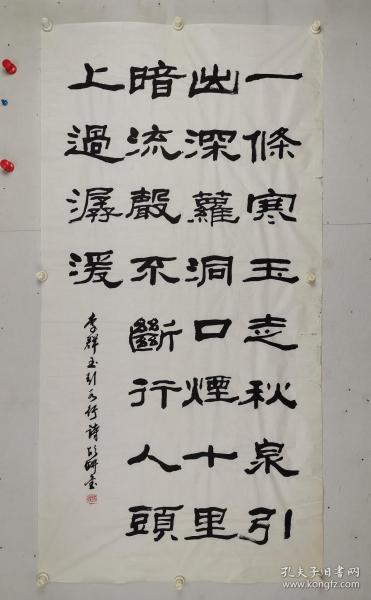 一條寒玉走秋泉引
出深蘿洞口煙十里
暗流聲不斷行人頭
上過潺湲
李群玉引水行詩
孔夫子旧书网
www.kongfz.com